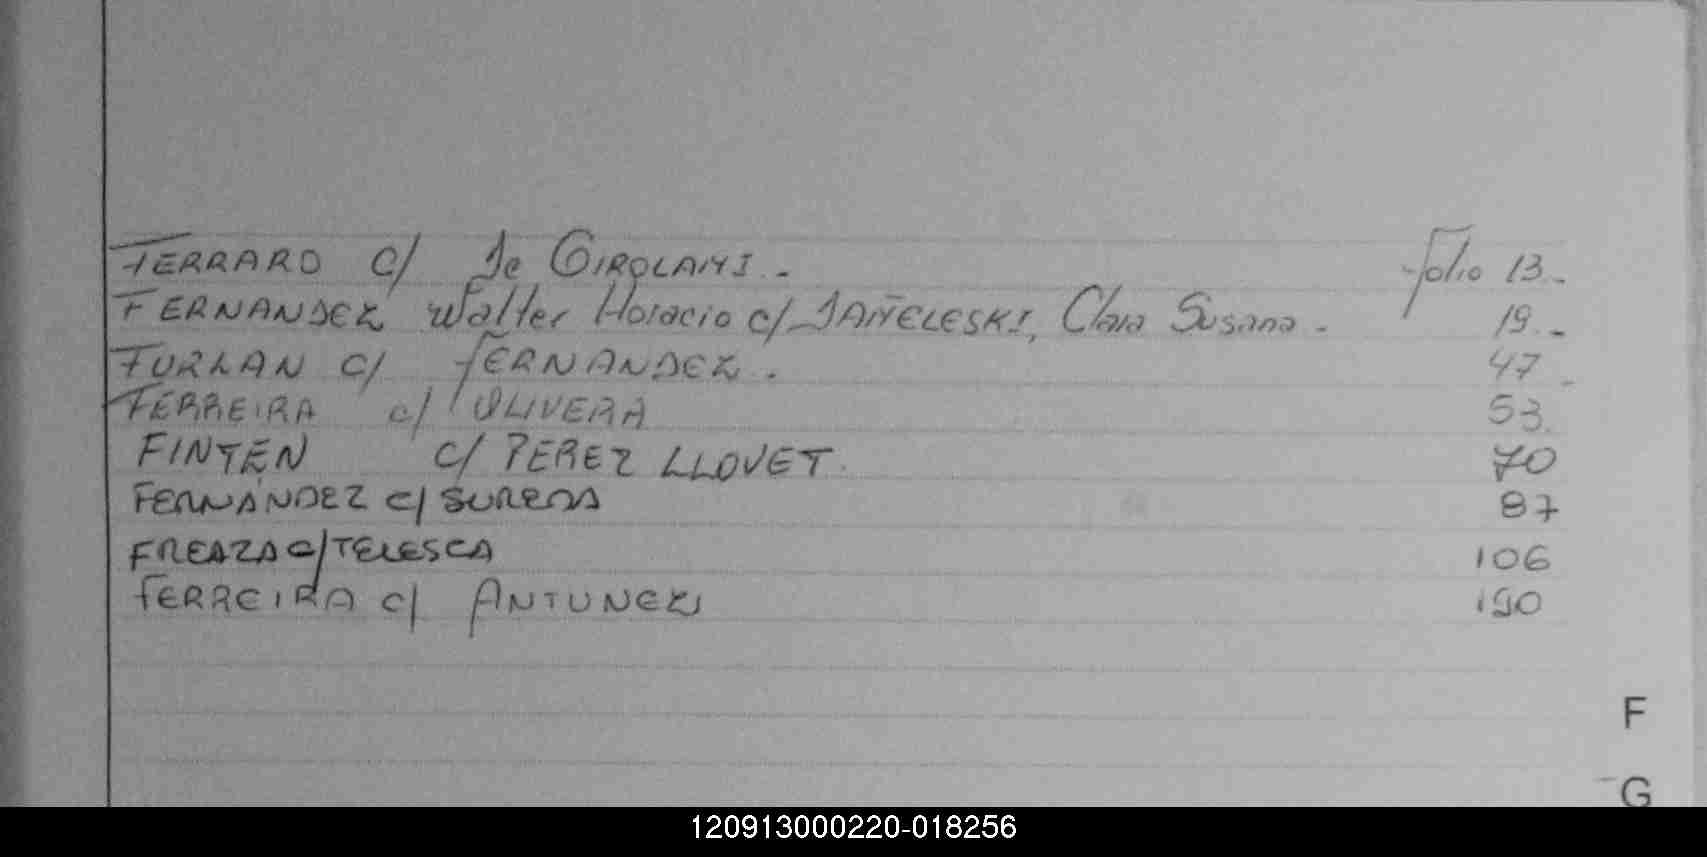 FERRARO c/ De GIROLAMI. - folio 13.-
FERNANDEZ Walter Horacio c/ JAÑELESKI, Clara Susana. - 19.-
FURLAN c/ FERNANDEZ. 47.-
FERREIRA c/ OLIVERA 53.
FINTEN c/ PEREZ LLOVET. 70
FERNÁNDEZ c/ SUREDA 87
FREAZA c/ TELESCA 106
FERREIRA c/ ANTUNEZ 190
F
G
120913000220-018256